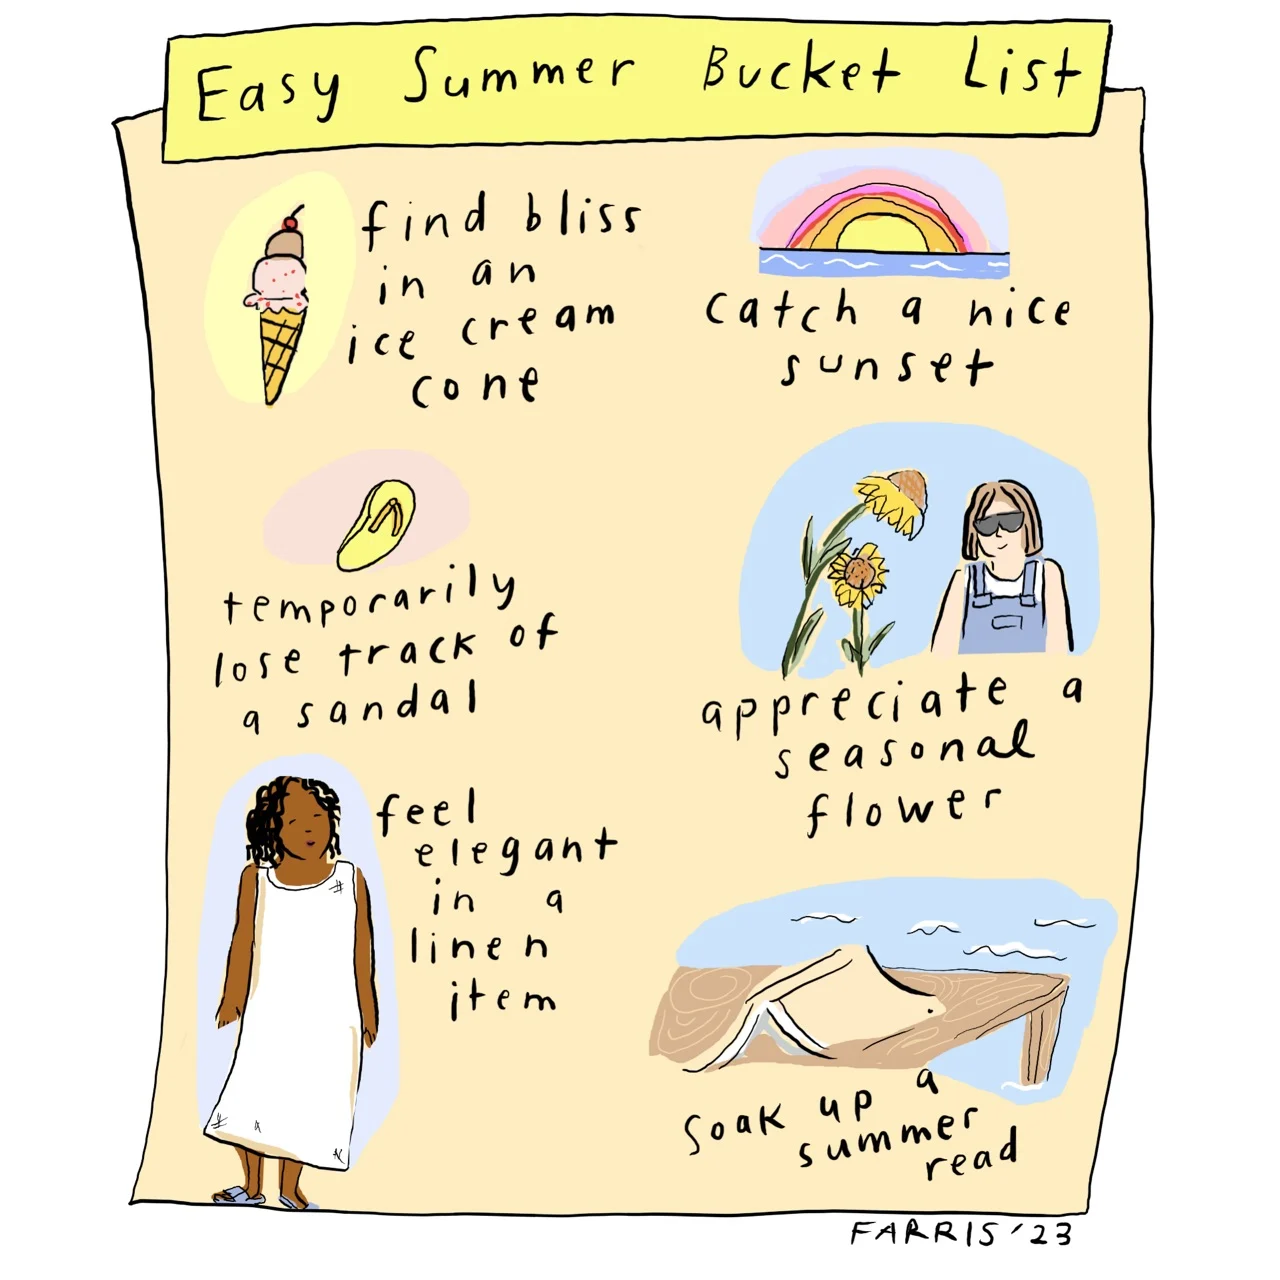 Easy Summer Bucket List
find bliss
in an
ice cream
cone
catch a nice
sunset
temporarily
lose track of
a sandal
appreciate a
seasonal
flower
feel
elegant
in a
linen
item
soak up a
summer
read
FARRIS '23